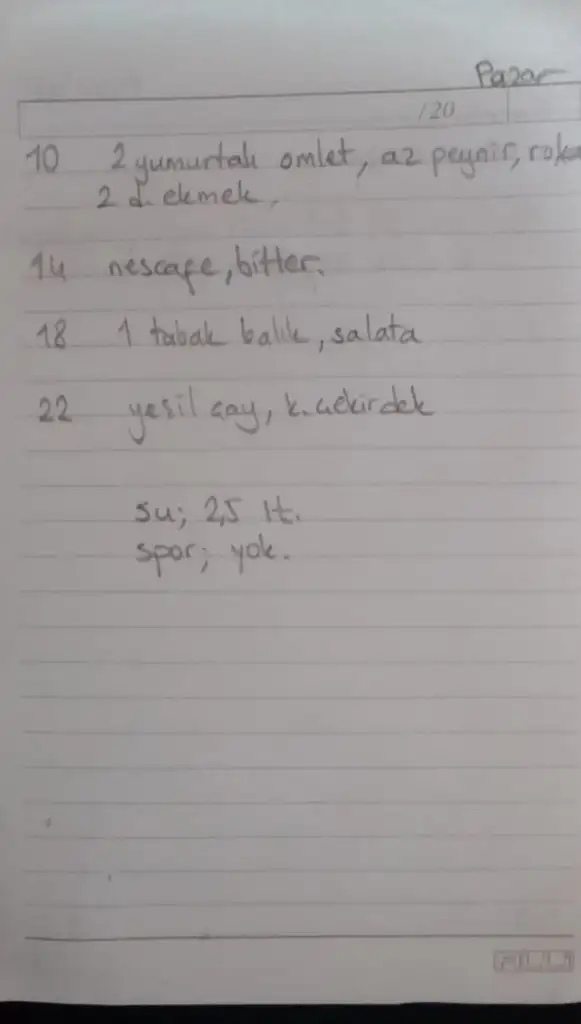 Pazar
/20
10 2 yumurtalı omlet, az peynir, roka
2 d. ekmek,
14 nescafe, bitter.
18 1 tabak balık, salata
22 yeşil çay, k. çekirdek
su; 2,5 lt.
spor; yok.